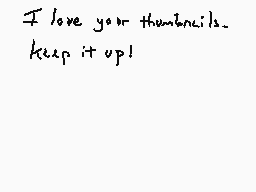 I love your thumbnails.
Keep it up!